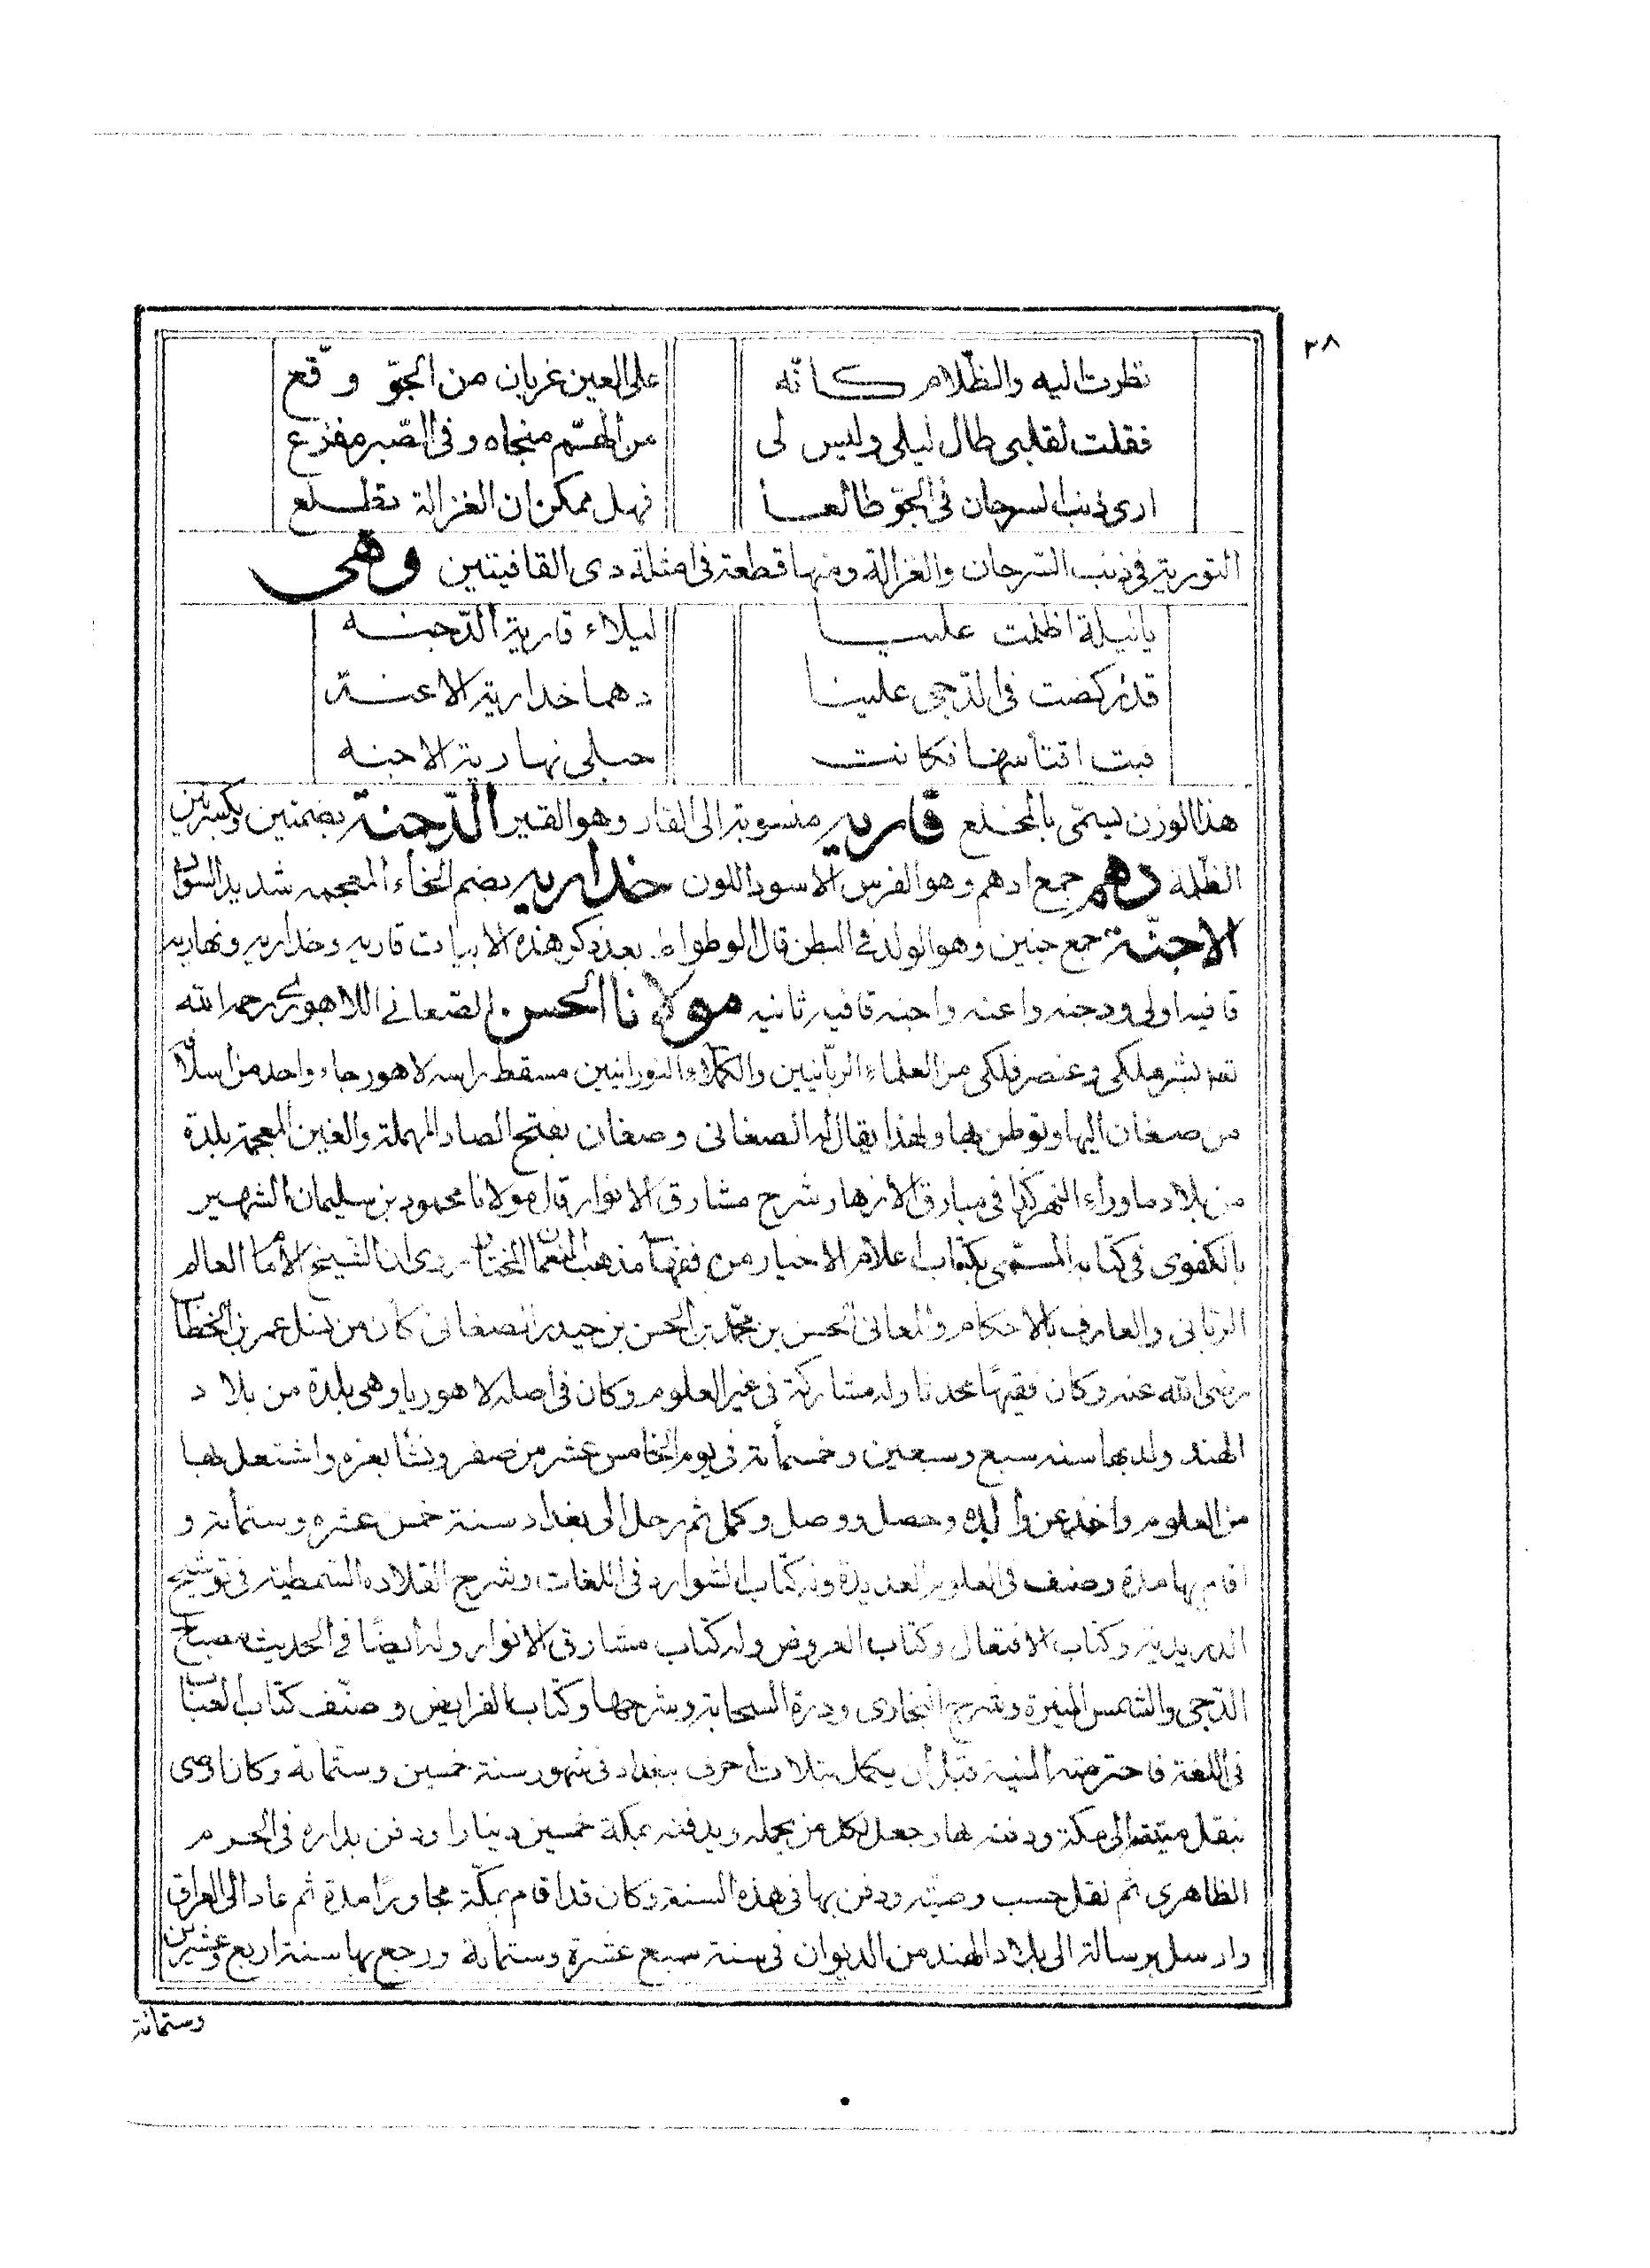 ٣٨
نظرت اليه والظّلام كأنّه على العين غربان من الجوّ وقّع
فقلت لقلبى طال ليلى وليس لى من الهمّ منجاه وفى الصّبر مفزع
ارى ذنب السرحان فى الجوّ طالعا فهل ممكن ان الغزالة تطلع
التورية فى ذنب السّرحان والغزالة ومنها قطعة فى امثلة ذى القافيتين وهى
ياليلة اظلمت علينا ليلاء قارية الدّجنه
قد ركضت فى الدّجى علينا دهما خدارية الاعنة
فبت اقتاسها فكانت حبلى نهارية الاجنه
هذا الوزن يسمّى بالمخلع قاريه منسوبة الى القار وهو القير الدّجنة بضمتين وبكسرتين
الظلمة دهم جمع ادهم وهو الفرس الاسود اللون خداريه بضم الخاء المعجمه شديد السّواد
الاجنّة جمع جنين وهو الولد فى البطن قال الوطواط بعد ذكر هذه الابيات قاريه وخداريه ونهاريه
قافيه اولى ودجنه واعنه واجنه قافيه ثانيه مولانا الحسن الصّغانى اللاهورى رحمه الله
نعم بشر ملكى وعنصر فلكى من العلماء الربّانيين والكملاء النورانيين مسقط راسه لاهور جاء واحد من اسلافه
من صغان اليها وتوطن بها ولهذا يقال له الصغانى وصغان بفتح الصاد المهملة والغين المعجمة بلدة
من بلاد ماوراء النهر كذا فى مبارق الازهار شرح مشارق الانوار قال مولانا محمود بن سليمان الشهير
بالكفوى فى كتابه المسمّى بكتاب اعلام الاخيار من فقهاء مذهب النعمان المختار روى ان الشيخ الامام العالم
الربانى والعارف بالاحكام والمعانى الحسن بن محمّد بن الحسن بن حيدر الصغانى كان من نسل عمر بن الخطاب
رضى الله عنه وكان فقيهًا محدثا وله مشاركة فى غير العلوم وكان فى اصله لاهوريا وهى بلدة من بلاد
الهند ولد بها سنه سبع وسبعين وخمسمأة فى يوم الخامس عشر من صفر ونشأ بغزه واشتغل بها
من العلوم واخذ عن والده وحصل ووصل وكمل ثم رحل الى بغداد سنة خمس عشره وستمأنة و
اقام بها مدة وصنف فى العلوم العديدة وله كتاب الشوارد فى اللغات وشرح القلاده السّمطية فى توشيح
الدريدية وكتاب الافتعال وكتاب العروض وله كتاب مشارق الانوار وله أيضًا فى الحديث مصباح
الدّجى والشمس المنيرة وشرح البخارى ودرة السحابة وشرحها وكتاب الفرايض وصنّف كتاب العباب
فى اللغة فاخترمته المنية قبل أن يكمل بثلاث أحرف ببغداد فى شهور سنة خمسين وستمانة وكان اوصى
بنقل ميته الى مكة ودفنه بها وجعل لكل من يحمله ويدفنه بمكة خمسين دينارا ودفن بداره فى الحرم
الظاهرى ثم نقل حسب وصيّته ودفن بها فى هذه السنة وكان قد اقام بمكّة مجاورًا مدة ثم عاد الى العراق
وارسل برسالة الى بلاد الهند من الديوان فى سنة سبع عشرة وستمانة ورجع بها سنة اربع وعشرين
وستمانة